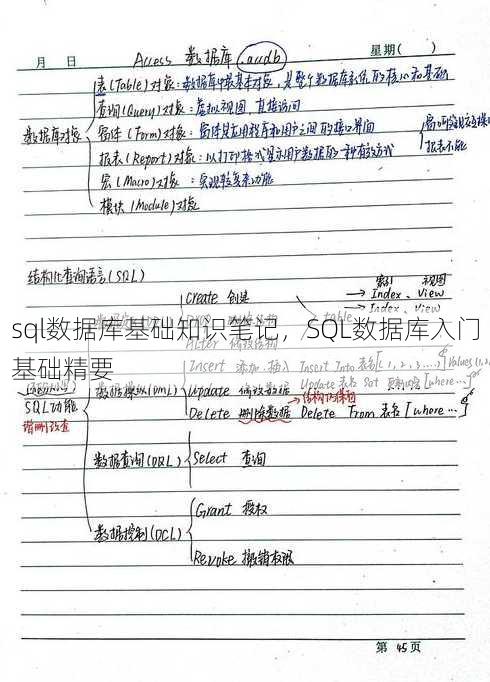 月 日 Access 数据库 .accdb 星期( )
表(Table)对象：数据库中最基本对象，是整个数据库系统的核心和基础
查询(Query)对象：虚拟视图，直接访问
数据库对象 窗体(Form)对象：窗体是应用程序和用户之间的接口界面
报表(Report)对象：以打印格式显示用户数据的一种有效方式
报表不能
宏(Macro)对象：实现较复杂功能
模块(Module)对象
结构化查询语言(SQL)
索引 视图
Create 创建 → Index、View
→ Index、View
sql数据库基础知识笔记，SQL数据库入门
Alter 修改结构 table
基础精要
Insert 添加、插入 Insert Into 表名[1,2,3,...]Values(1,2
数据操纵(DML) Update 修改数据 Update 表名 Set [where...]
SQL功能 →结构仍保留
增删改查 Delete 删除数据 Delete From 表名[where...]
数据查询(DQL) Select 查询
数据控制(DCL) Grant 授权
Revoke 撤销权限
第 45 页